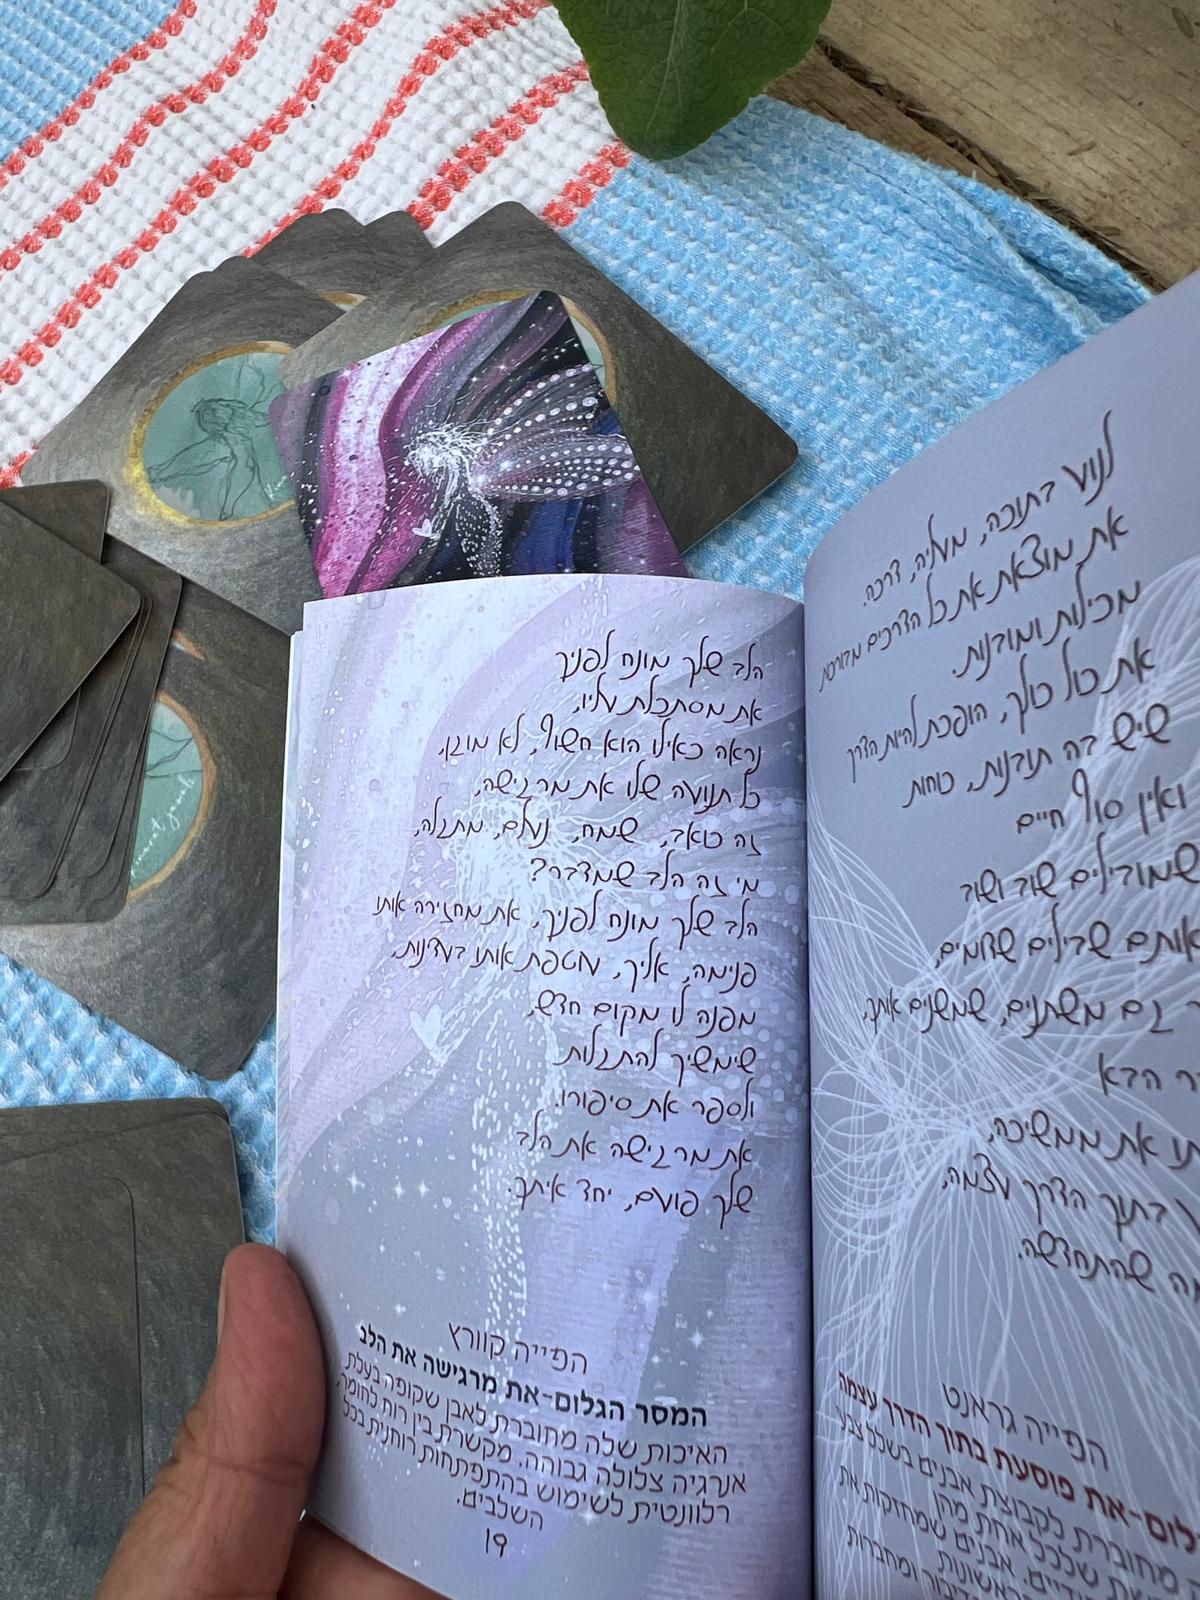 הלב שלך מונח לפניך
את מסתכלת עליו,
נראה כאילו הוא חשוף, לא מוגן,
כל תנועה שלו את מרגישה,
זה כואב, שמח, נעלם, מתגלה,
מי זה הלב שמדבר?
הלב שלך מונח לפניך, את מחזירה אותו
פנימה, אליך, עוטפת אותו בעדינות,
מפנה לו מקום חדש,
שימשיך להתגלות
ולספר את סיפורו.
את מרגישה את הלב
שלך פועם, יחד איתך.
הפייה קוורץ
המסר הגלום-את מרגישה את הלב
האיכות שלה מחוברת לאבן שקופה בעלת
אנרגיה צלולה גבוהה. מקשרת בין רוח לחומר,
רלוונטית לשימוש בהתפתחות רוחנית בכל
השלבים.
19
לנוע בתוכה, מעליה, דרכה.
את מוצאת את כל הדרכים מבורכת
מכילות ומובנות.
את כול כולך, הופכת להיות הדרך
שיש בה תובנות, כוחות
ואין סוף חיים
שמובילים שוב ושוב
אותם שבילים שדומים,
גם משתנים, שמשנים אותך,
הבא
את ממשיכה,
בתוך הדרך עצמה,
שהתחדשה.
הפייה גראנט
את פוסעת בתוך הדרך עצמה
מחוברת לקבוצת אבנים בשלל צבעי
שלכל אחת מהן
אבנים שמחזקות את
ומחברות